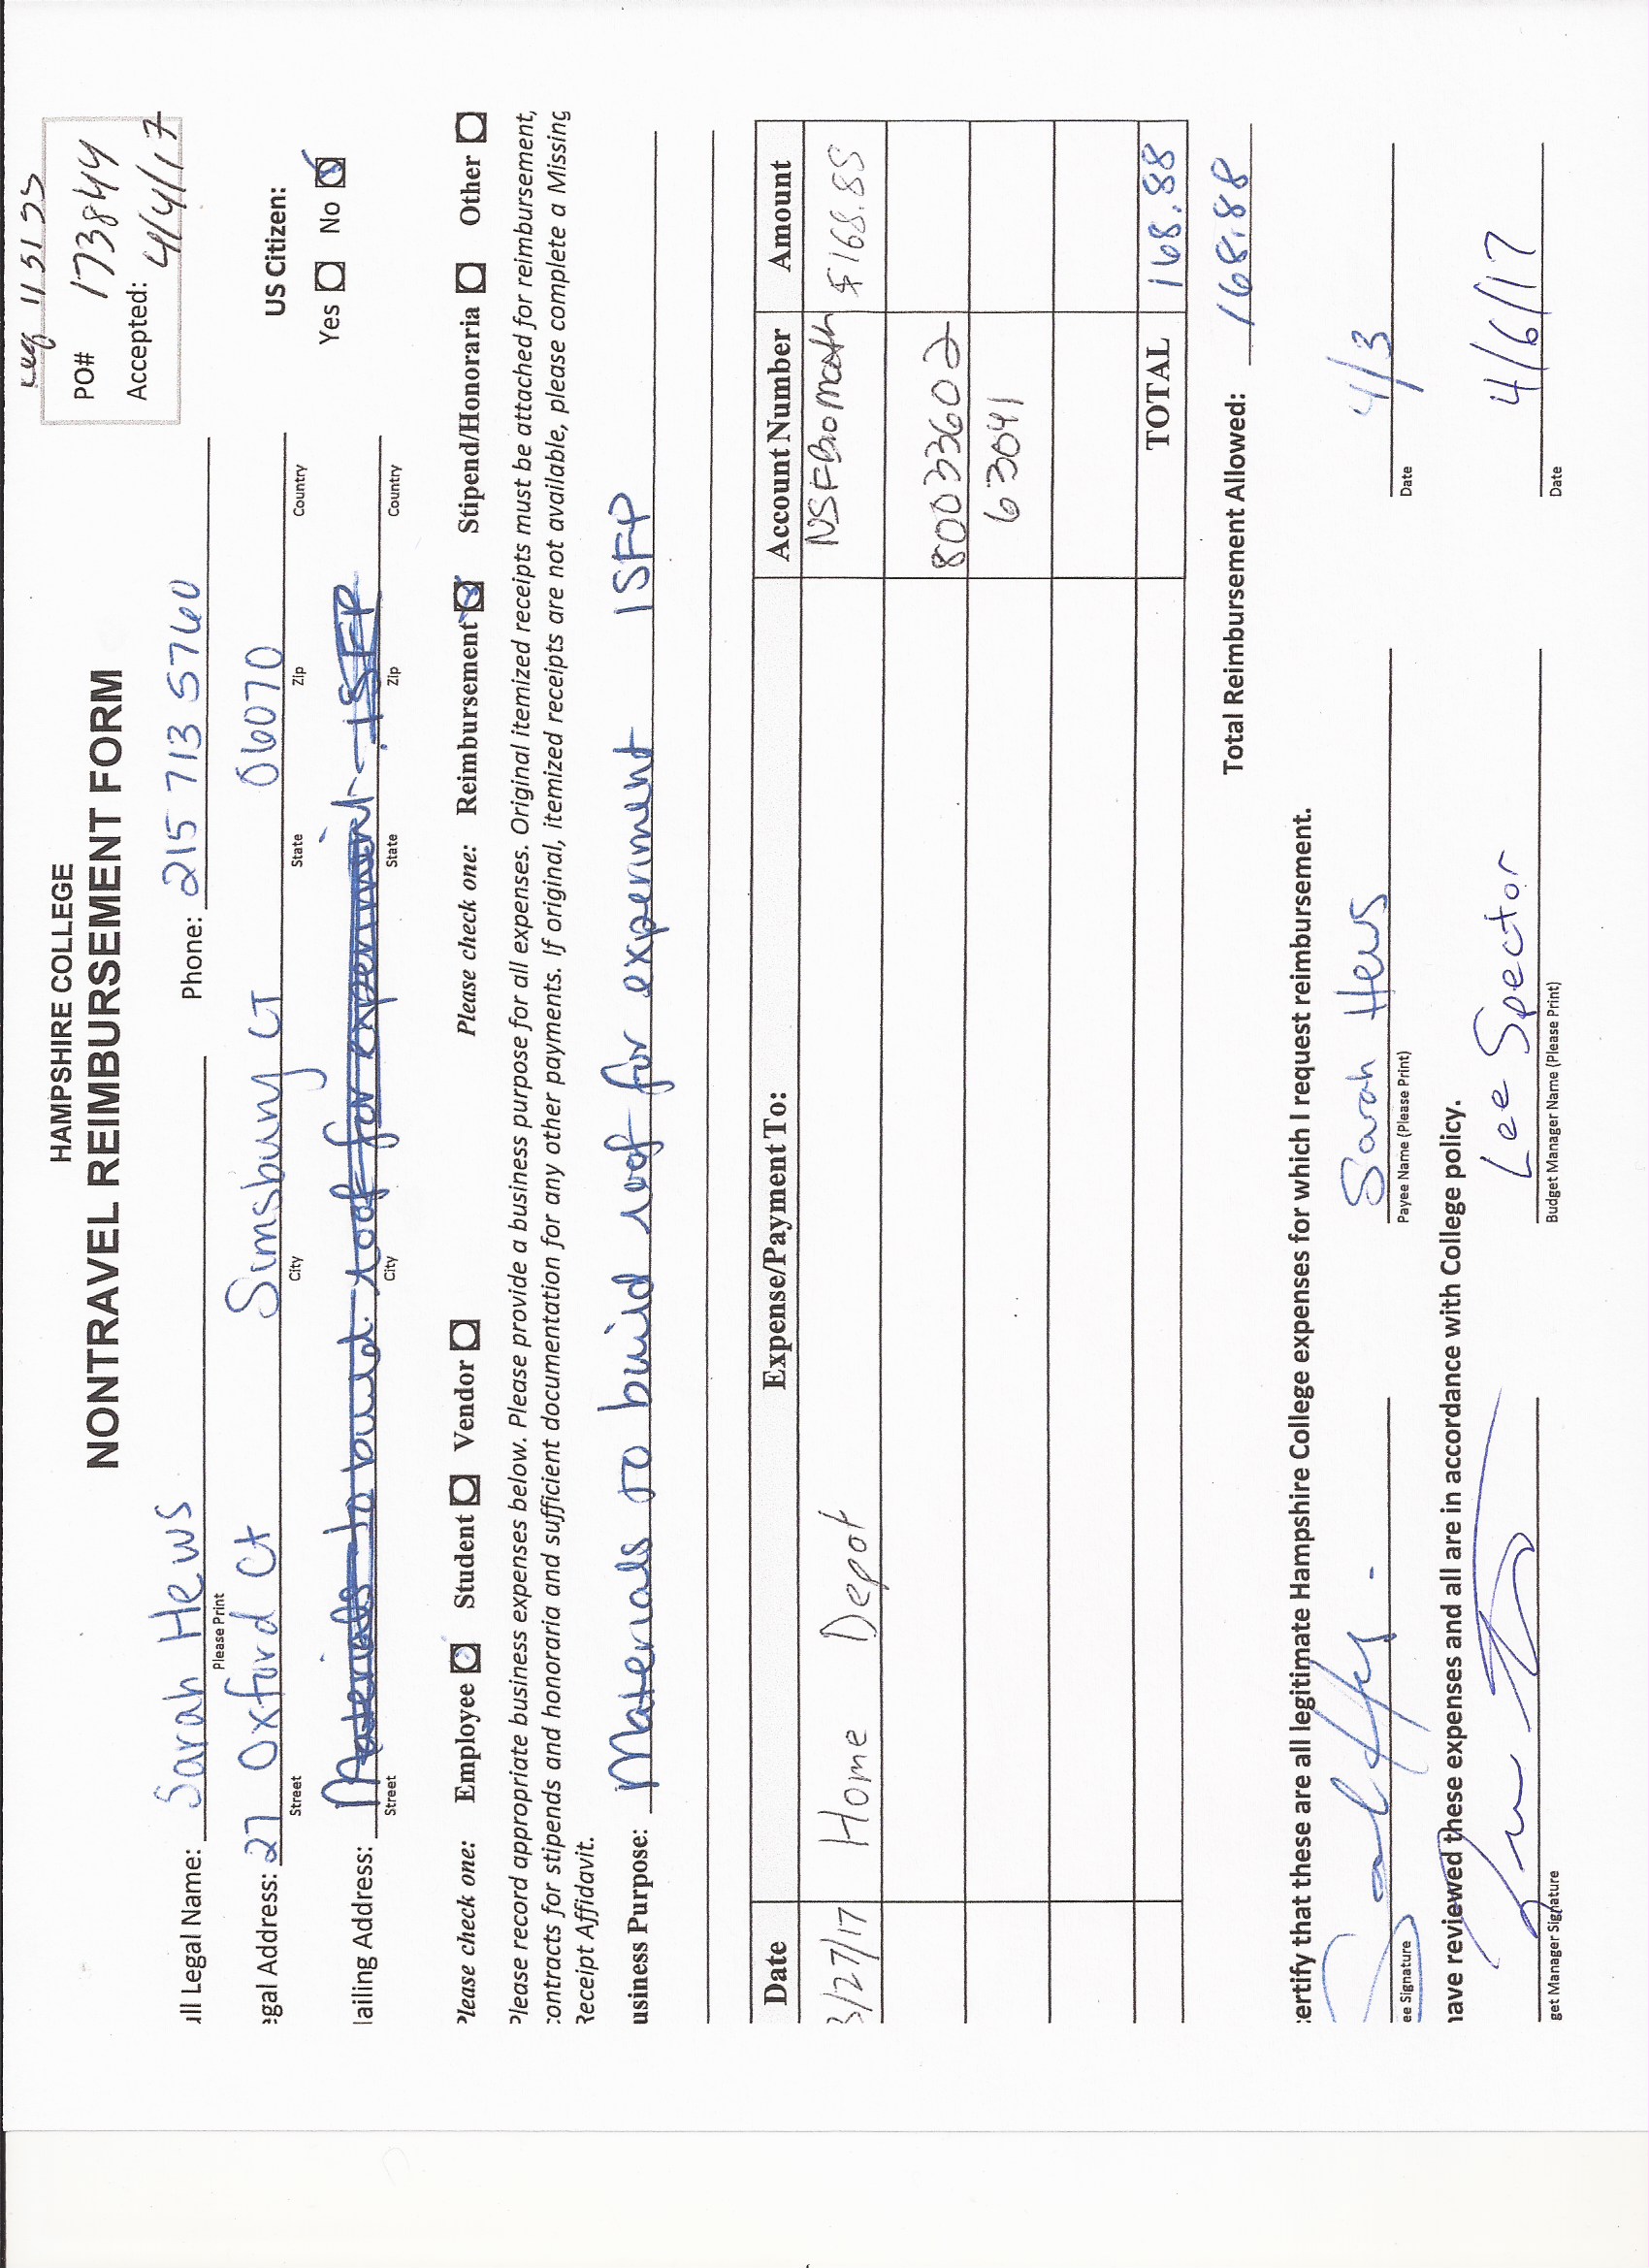 req 113155
HAMPSHIRE COLLEGE
NONTRAVEL REIMBURSEMENT FORM
PO# 173844
Accepted: 4/4/17
ull Legal Name: Sarah Hews Phone: 215 713 5760
Please Print
US Citizen:
egal Address: 27 Oxford Ct Simsbury CT 06070
Street City State Zip Country
Yes No
lailing Address: Materials to build roof for experiment - ISFP
Street City State Zip Country
Please check one: Employee Student Vendor Please check one: Reimbursement Stipend/Honoraria Other
Please record appropriate business expenses below. Please provide a business purpose for all expenses. Original itemized receipts must be attached for reimbursement,
contracts for stipends and honoraria and sufficient documentation for any other payments. If original, itemized receipts are not available, please complete a Missing
Receipt Affidavit.
usiness Purpose: Materials to build roof for experiment ISFP
Date Expense/Payment To: Account Number Amount
3/27/17 Home Depot NSFBiomath $168.88
80033602
63041
TOTAL 168.88
Total Reimbursement Allowed: 168.88
certify that these are all legitimate Hampshire College expenses for which I request reimbursement.
Sarah Hews 4/3
ee Signature Payee Name (Please Print) Date
have reviewed these expenses and all are in accordance with College policy.
Lee Spector 4/6/17
get Manager Signature Budget Manager Name (Please Print) Date